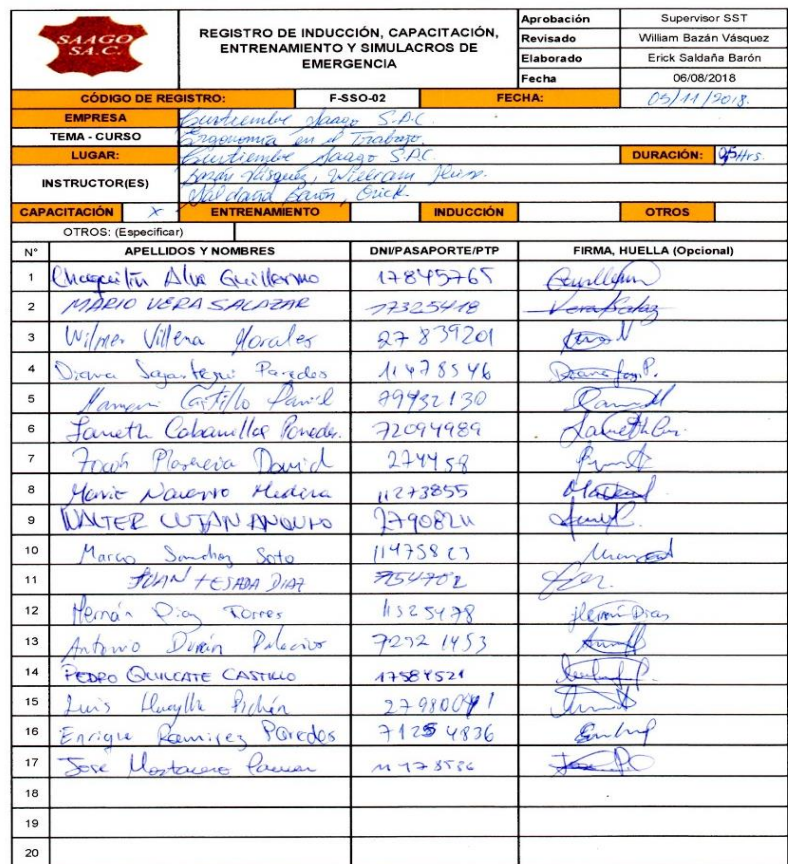 SAAGO S.A.C.
REGISTRO DE INDUCCIÓN, CAPACITACIÓN, ENTRENAMIENTO Y SIMULACROS DE EMERGENCIA
Aprobación Supervisor SST
Revisado William Bazán Vásquez
Elaborado Erick Saldaña Barón
Fecha 06/08/2018
CÓDIGO DE REGISTRO: F-SSO-02 FECHA: 05/11/2018.
EMPRESA Curtiembre Saago S.A.C.
TEMA - CURSO Ergonomía en el Trabajo.
LUGAR: Curtiembre Saago S.A.C. DURACIÓN: 0,5 Hrs.
INSTRUCTOR(ES) Bazán Vásquez, William
Saldaña Barón, Erick.
CAPACITACIÓN X ENTRENAMIENTO INDUCCIÓN OTROS
OTROS: (Especificar)
N° APELLIDOS Y NOMBRES DNI/PASAPORTE/PTP FIRMA, HUELLA (Opcional)
1 Alva Guillermo 17845765
2 MARIO VERA SALAZAR 17325418
3 Wilmer Villena Morales 27839201
4 Diana Paredes 11478546
5 Castillo Daniel
6 Janeth Cabanillas Paredes. 72094989
7 David 274458
8 Mario Navarro Medina 11273855
9 WALTER LUJAN
10 Marco Sanchez Soto
11 JUAN TEJADA DIAZ 754702
12 Hernán Diaz Torres 11325478 Hernán Dias
13 Antonio Durán Palacios 72921453
14 PEDRO QUILCATE CASTILLO 17584521
15 Luis
16 Enrique Ramirez Paredes 71254836
17 Jose
18
19
20